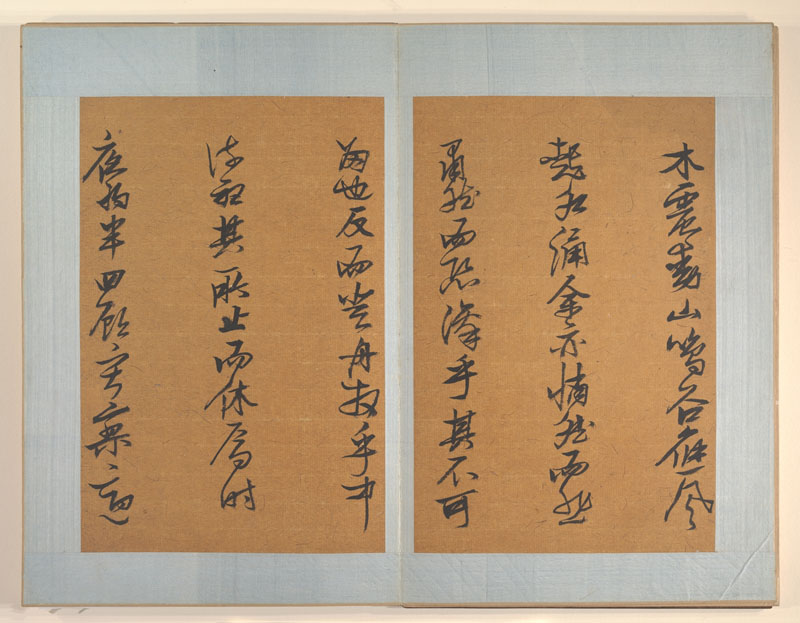 木震動山鳴谷應風
起水涌余亦悄然而悲
肅然而恐凜乎其不可
留也反而登舟放乎中
流聽其所止而休焉時
夜將半四顧寂寥適